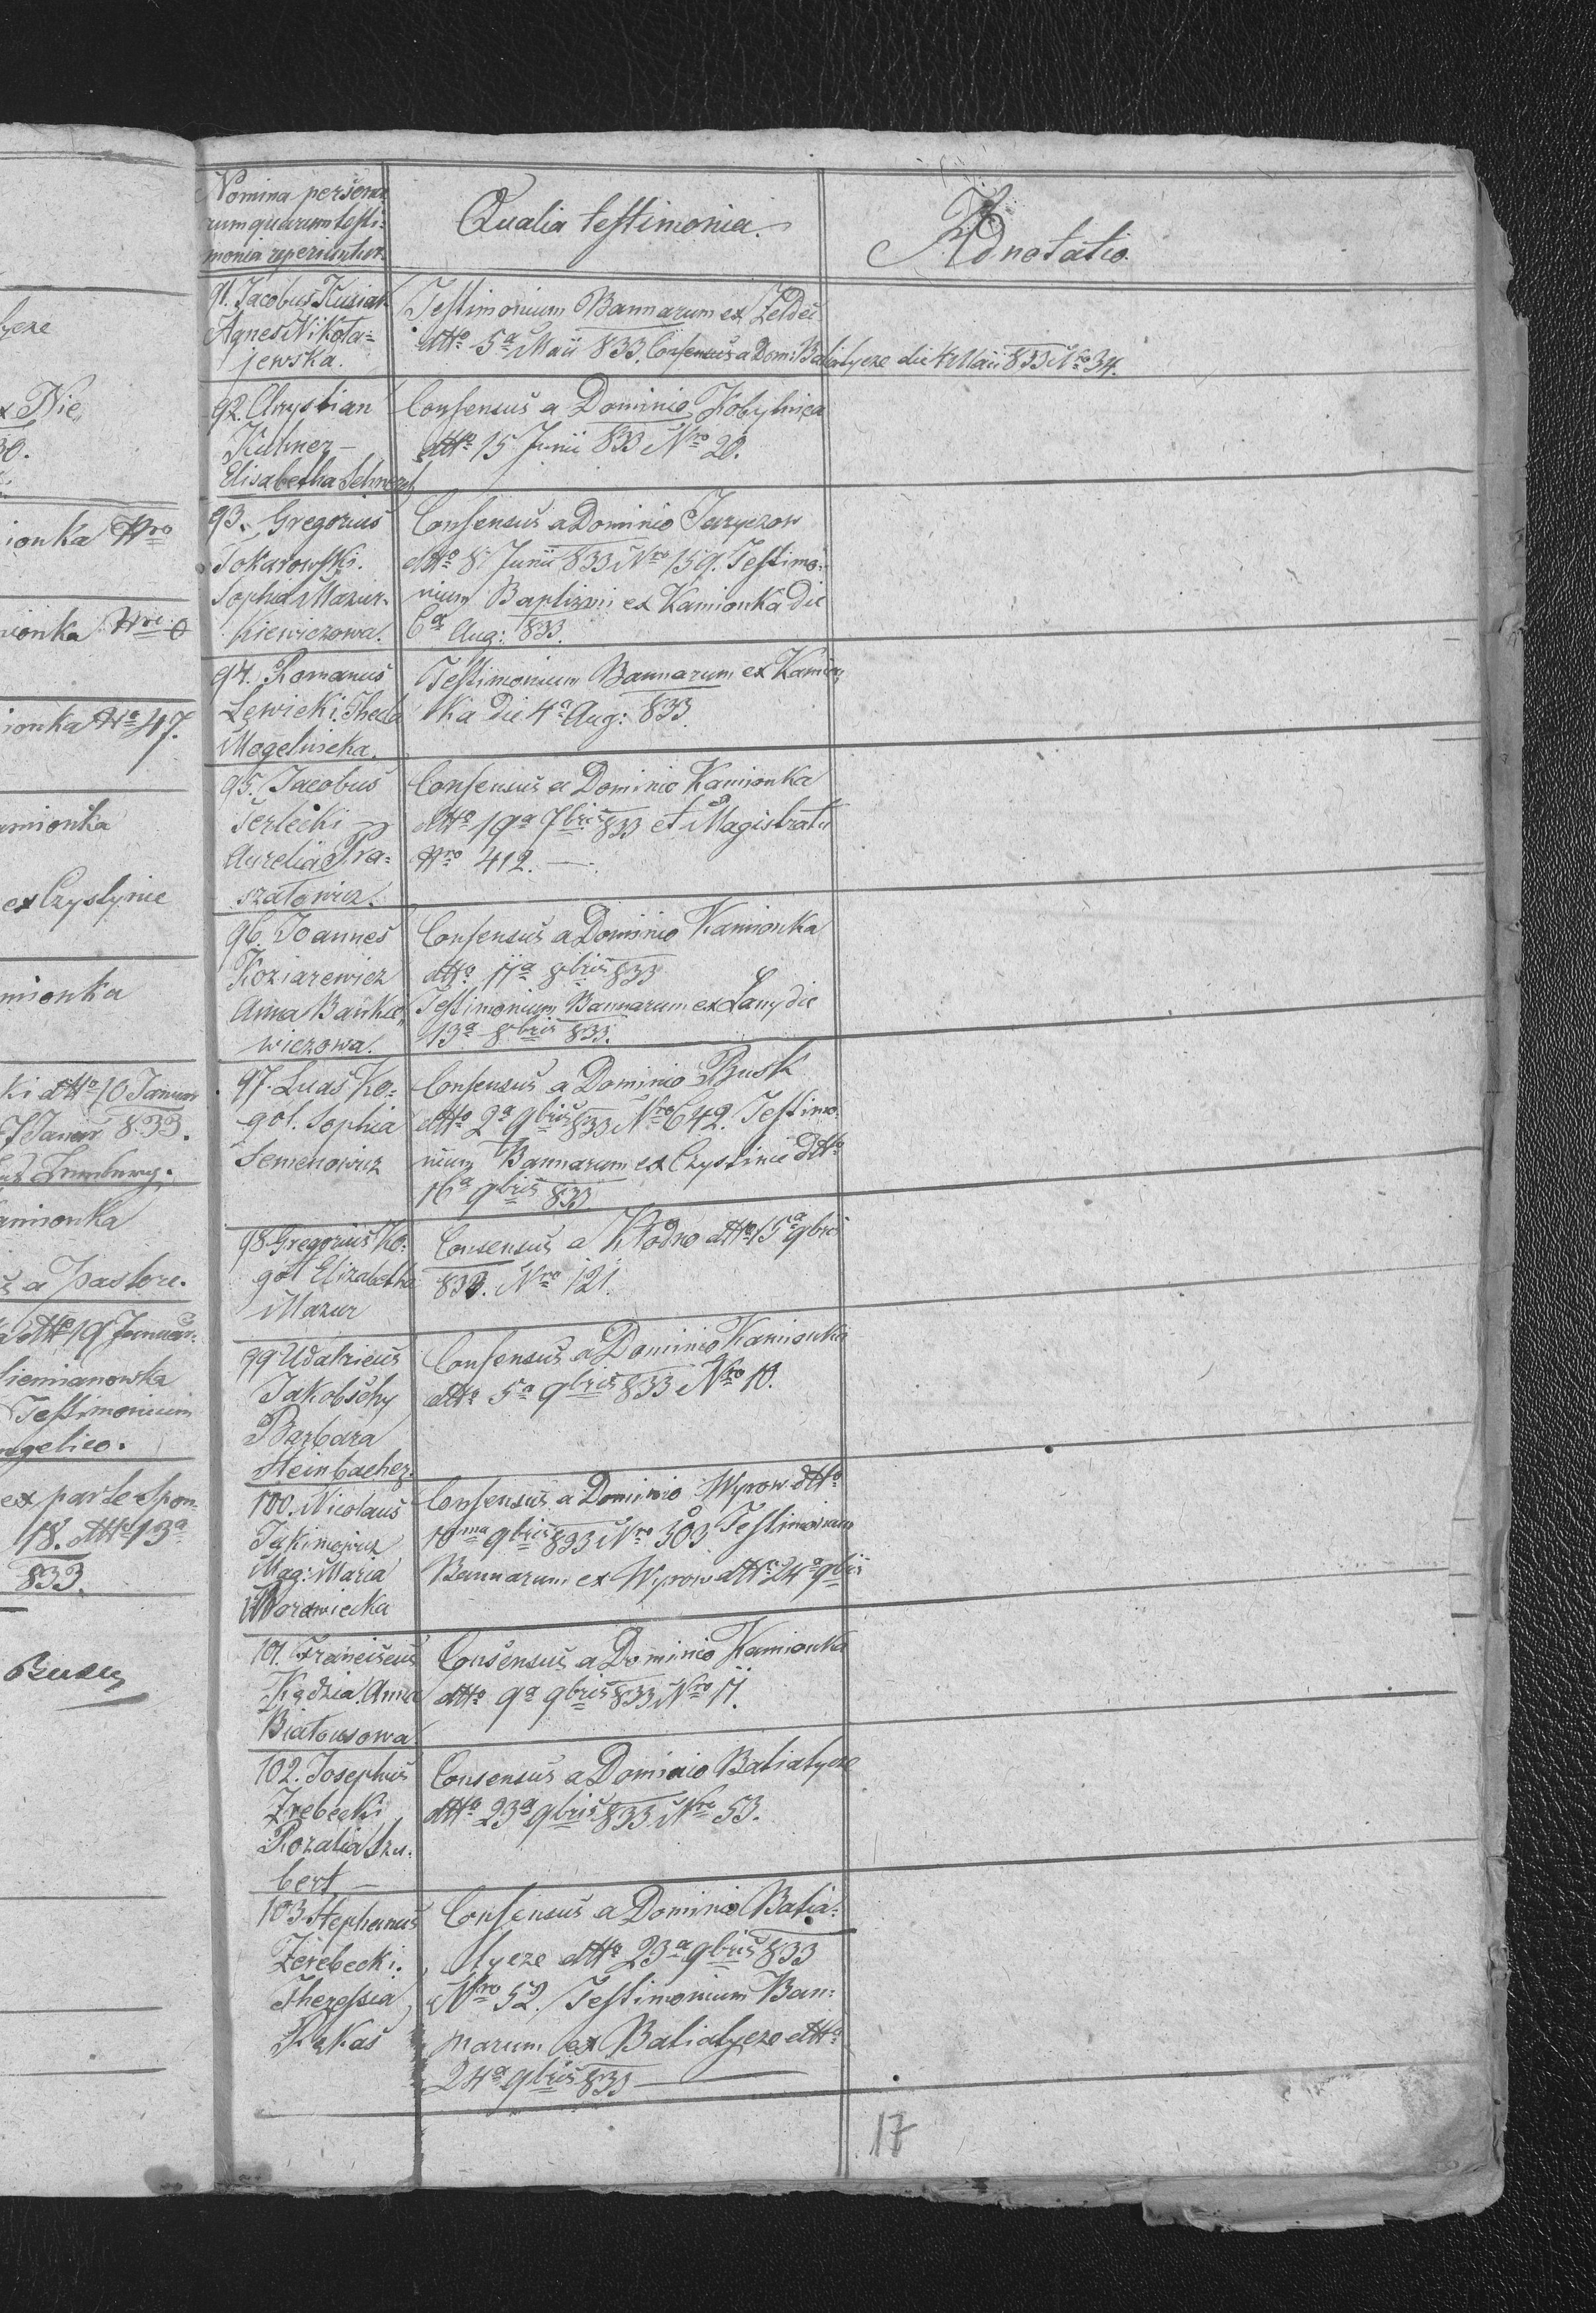 ycze
x Nie
30.
ionka Nro
ionka Nro
ionka Nro 47.
amionka
ex Czystynie
mionka
ki dtto 10 Januar
7 Januar 833.
Lemburg.
amionka
a Pastore.
dtto 19 Januar.
Testimonium
ngelico.
ex parte Spon
18. dtto 13a
833.
Nomina persona
rum quarum testi:
monia reperiuntur
Qualia testimonia.
Adnotatio.
91. Jacobus Kusiak
Agnes Nikola=
jewska.
Testimonium Bannarum ex Zeldec
dtto 5a Maii 833. Consensus a Dom: Batiatycze die 4 Maii 833 Nro 34.
92. Chrystian
Kuhner –
Elisabetha Schweyk
Consensus a Dominio Kobylnica
dtto 15 Junii 833 Nro 20.
93. Gregorius
Tokarowski.
Sophia Mazur-
kiewiczowa.
Consensus a Dominio Jaryczow
dtto 8 Junii 833 Nro 159. Testimo:
nium Baptizmi ex Kamionka die
6a Aug: 833.
94. Romanus
Lewicki. Thecla
Mogelnicka.
Testimonium Bannarum ex Kamion
ka die 4a Aug: 833
95. Jacobus
Terlecki –
Aurelia Pra=
szalowicz.
Consensus a Dominio Kamionka
dtto 19a 7bris 833 et Magistratu
Nro 412. –.
96. Joannes
Koziarewicz
Anna Bankie
wiczowa.
Consensus a Dominio Kamionka
dtto 11a 8bris 833
Testimonium Bannarum ex Lany die
13a 8bris 833.
97. Lucas Ko=
got. Sophia
Semenowicz
Consensus a Dominio Busk
dtto 2a 9bris 833 Nro 642. Testimo
nium Bannarum ex Czystinie dtto
16a 9bris 833
98. Gregorius Ko=
got Elizabetha
Mazur
Consensus a Kłodno dtto 15a 9bris
833. Nro 121.
99 Udalricus
Jakobschy
Barbara
Steinbacher.
Consensus a Dominio Kamionka
dtto 5a 9bris 833 Nro 10.
100. Nicolaus
Jakimowicz
Mag: Maria
Morawiecka
Consensus a Dominio Wyrow dtto
10ma 9bris 833 Nro 303 Testimonium
Bannarum ex Wyrow dtto 24a 9bris
101. Franciscus
Kądzia. Anna
Białousowa
Consensus a Dominio Kamionka
dtto 9a 9bris 833 Nro 11.
102. Josephus
Zrebecki
Rozalia Szu=
bert –
Consensus a Dominio Batiatycze
dtto 23a 9bris 833 Nro 53.
103 Stephanus
Zerebecki.
Theressia
Consensus a Dominio Batia=
tycze dtto 23a 9bris 833
Nro 52. Testimonium Ban=
narum ex Batiatycze dtto
24a 9bris 833 –
17